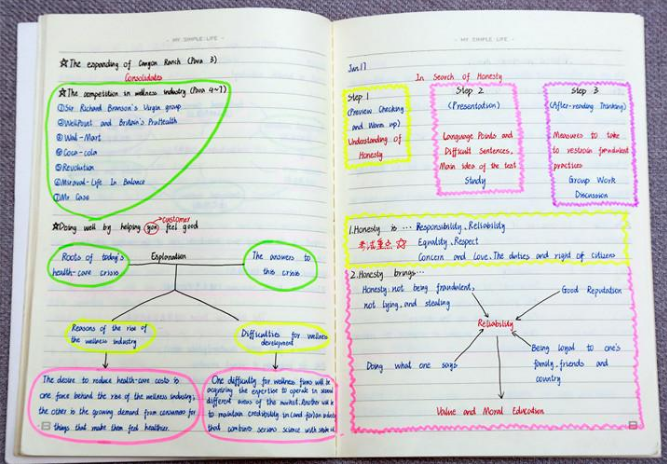 MY SIMPLE LIFE
☆ The expanding of Canyon Ranch (Para 3)
Consolidates
☆ The competition in wellness industry (Para 4~7)
①Sir Richard Branson's Virgin group
②WellPoint and Britain's PruHealth
③Wal-Mart
④Coca-cola
⑤Revolution
⑥Miraval-Life In Balance
⑦Mr Case
customer
☆Doing well by helping you feel good
Roots of today's
health-care crisis
Exploration
The answers to
this crisis
Reasons of the rise of
the wellness industry
Difficulties for wellness
development
The desire to reduce health-care costs is
one force behind the rise of the wellness industry;
the other is the growing demand from consumers for
things that make them feel healthier.
One difficulty for wellness firms will be
acquiring the expertise to operate in several
different areas of the market. Another will be
to maintain credibility
that combines serious science with
MY SIMPLE LIFE
Jan 17
In Search of Honesty
Step 1
(Preview Checking
and Warm up)
Understanding of
Honesty
Step 2
(Presentation)
Language Points and
Difficult Sentences,
Main idea of the text
Study
Step 3
(After-reading Thinking)
Measures to take
to restrain fraudulent
practices
Group Work
Discussion
1.Honesty is ··· Responsibility, Reliability
☆ Equality, Respect
Concern and Love, The duties and right of citizens
2.Honesty brings···
Honesty: not being fraudulent,
not lying, and stealing
Good Reputation
Reliability
Doing what one says
Being loyal to one's
family, friends and
country
Value and Moral Education